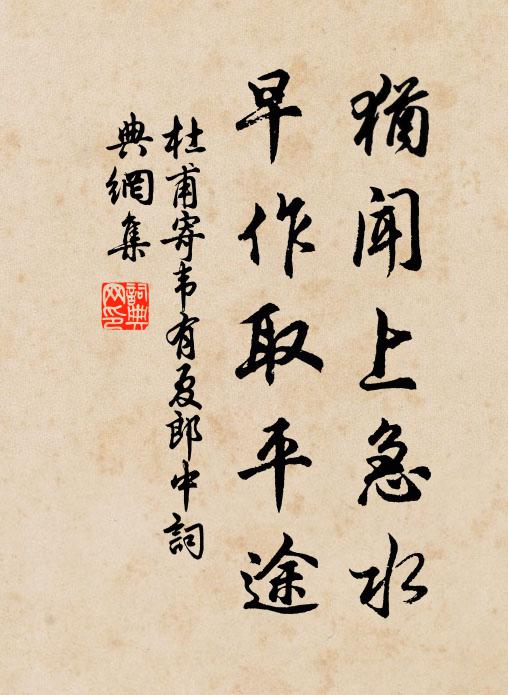 猶聞上急水
早作取平途
杜甫寄韦有夏郎中詞
典網集
詞典
网印